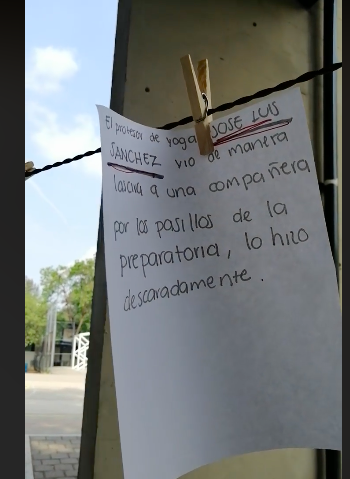 El profesor de yoga JOSE LUIS
SANCHEZ vio de manera
lasciva a una compañera
por los pasillos de la
preparatoria, lo hizo
descaradamente.